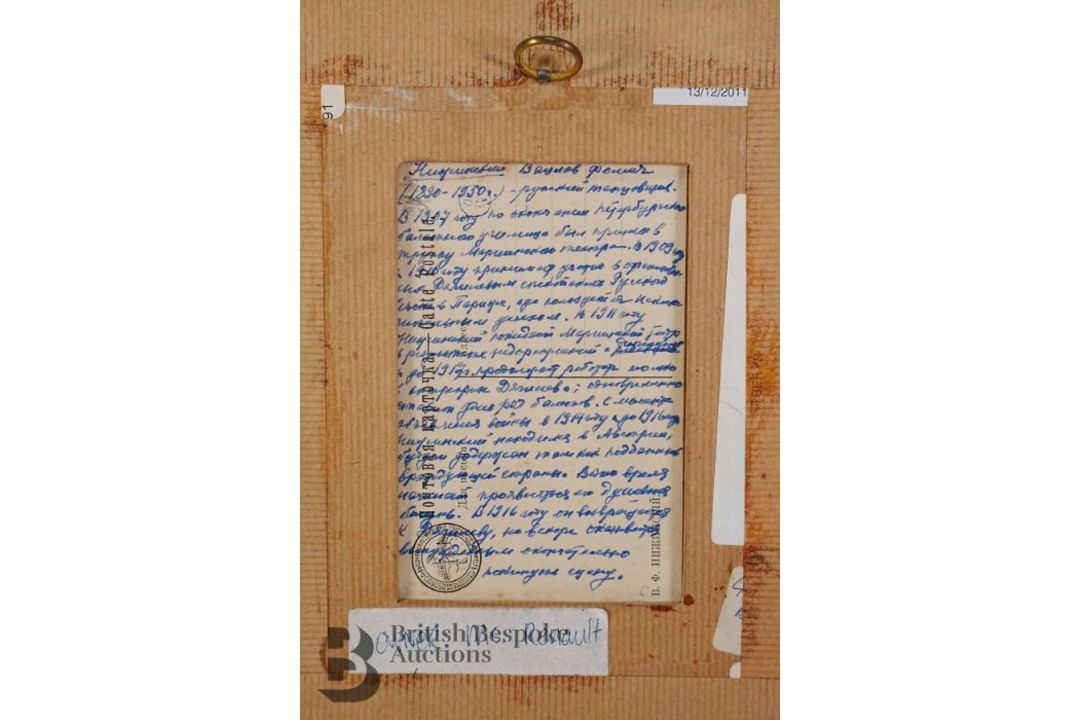 13/12/2011
91
Нижинский Вацлав Фомич
(1890-1950г.) - русский танцовщик.
В 1907 году по окончании Петербургского
балетного училища был принят в
труппу Мариинского театра. В 1909
году принимает участие в
спектаклях Русского
в Париже, где пользуется
успехом. В 1911 году
Нижинский покидает Мариинский театр
в результате недоразумений с
продолжает работу
в антрепризе Дягилева; одновременно
ставит ряд балетов. С момента
объявления войны в 1914 году и до 1916 года
Нижинский находился в Австрии,
будучи задержан там как подданный
враждующей страны. В это время
начинает проявляться его душевная
болезнь. В 1916 году он возвращается
к Дягилеву, но вскоре оказывается
вынужденным окончательно
покинуть сцену.
Почтовая карточка. Carte Postale.
Для письма
В. Ф. НИЖИНСКІЙ
owner Mc Renault
British Bespoke
Auctions